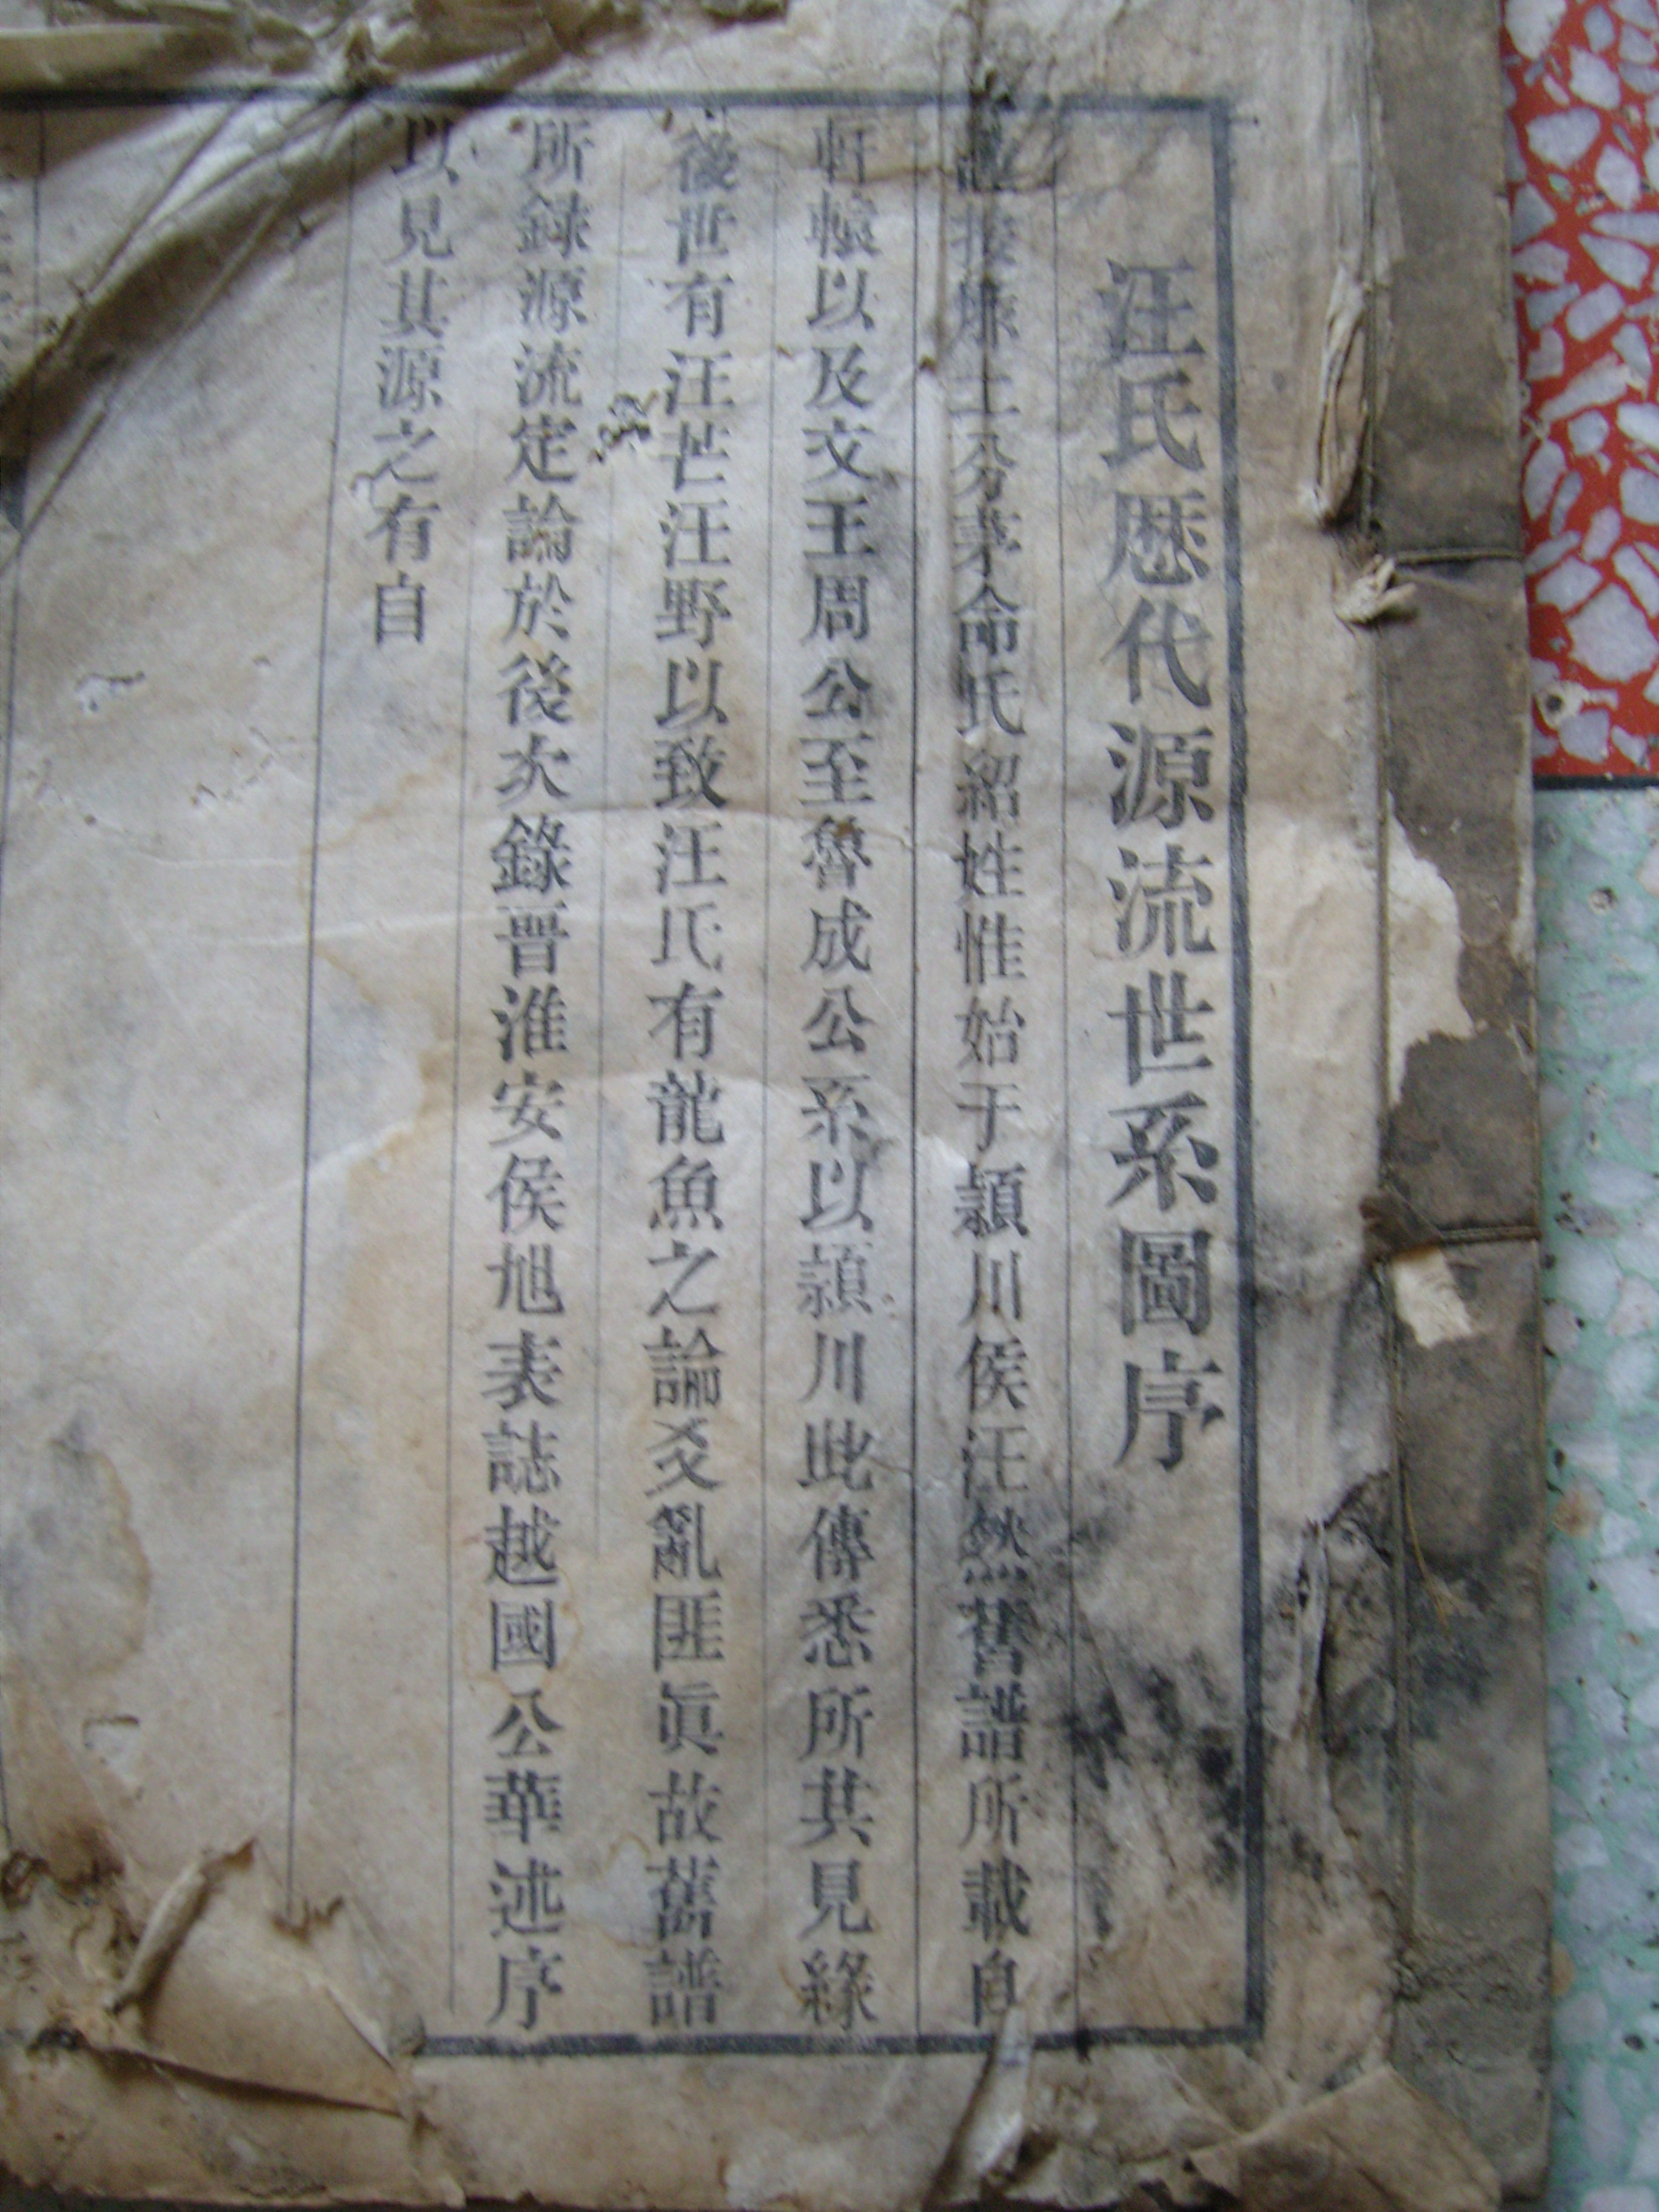 汪氏歴代源流世系圖序
土分茅命氏紹姓惟始于潁川侯汪然舊譜所載自
軒轅以及文王周公至魯成公系以潁川此傳悉所其見緣
後世有汪芒汪野以致汪氏有龍魚之論爻亂匪眞故舊譜
所録源流定論於後次錄晋淮安侯旭表誌越國公華述序
以見其源之有自